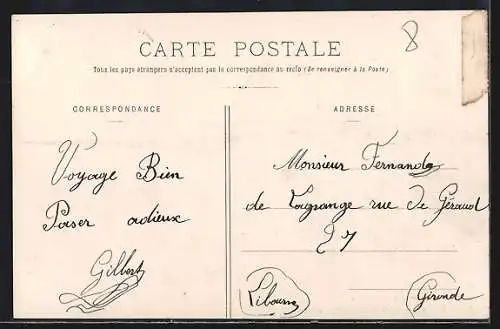 8
CARTE POSTALE
Tous les pays étrangers n'acceptent pas la correspondance au recto (Se renseigner à la Poste)
CORRESPONDANCE
Voyage Bien
Paser adieux
Gilbert
ADRESSE
Monsieur Fernande
de Lagrange rue De Géraud
27
Libourne
Gironde